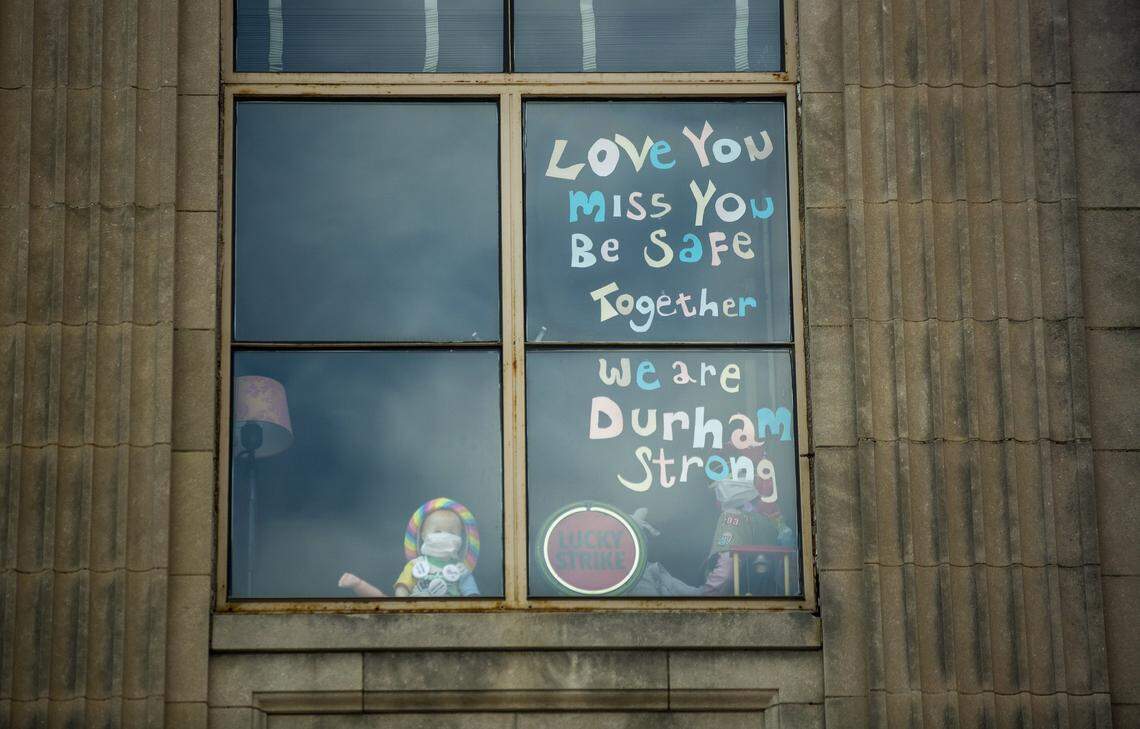 Love You
Miss You
Be Safe
Together
We are
Durham
Strong
LUCKY
STRIKE
93